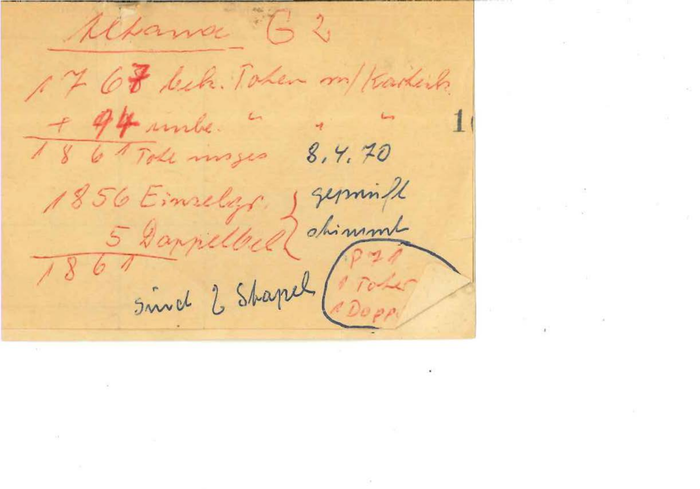 G 2
1767 bek. Toten m/Karteik.
+ 94 unbe. " " "
1861 Tote insges
8.4.70
1856 Einzelgr.
geprüft
5 Doppelbel
stimmt
1861
Sind 2 Stapel
1 Toter
1 Dopp